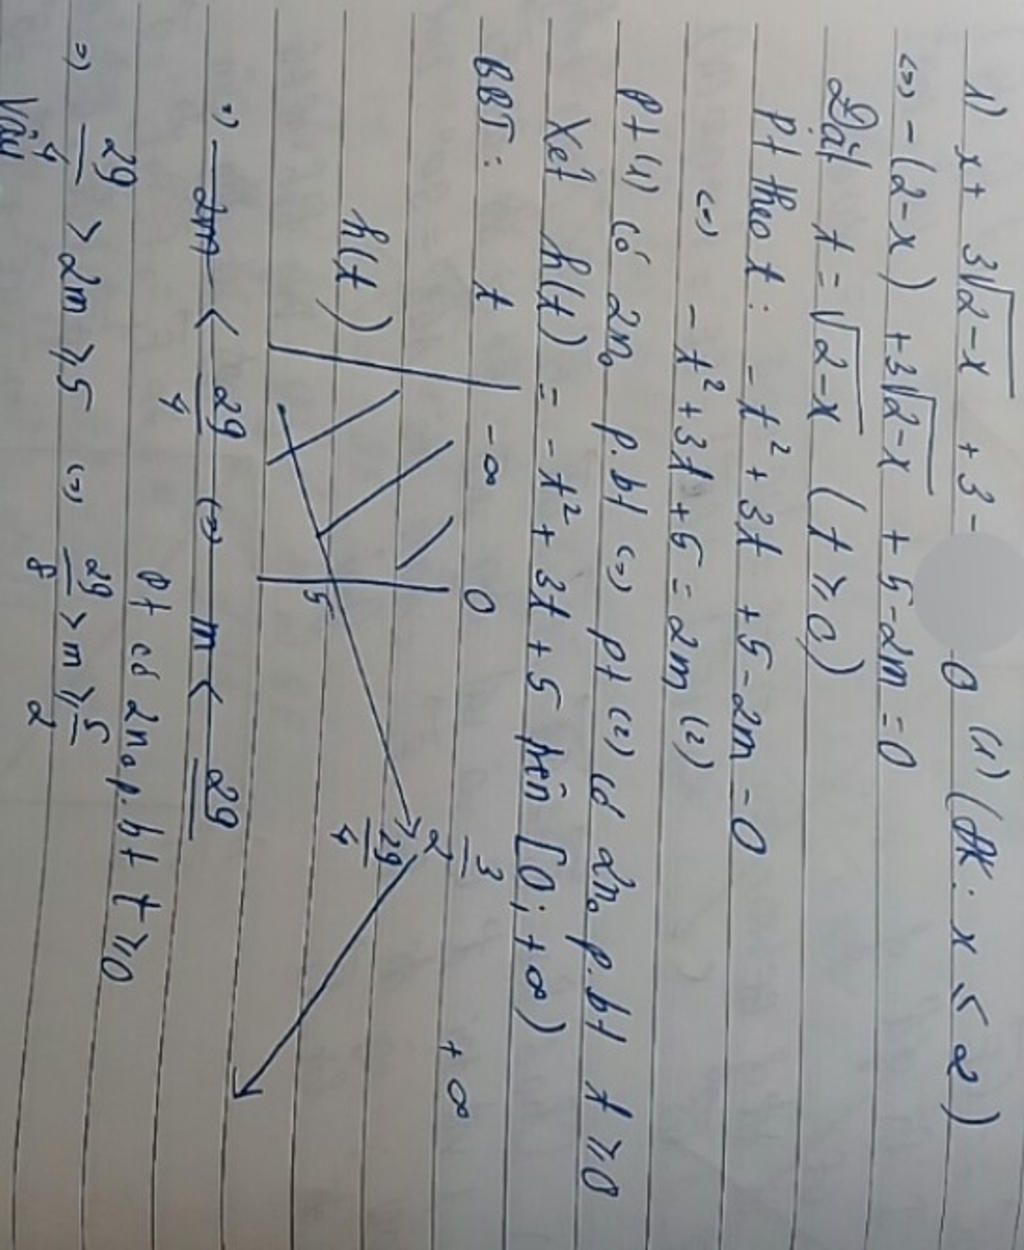 1) x + 3√2-x + 3 - 0 (1) (ĐK: x ≤ 2)
<=> -(2-x) + 3√2-x + 5-2m = 0
Đặt t = √2-x (t ≥ 0)
Pt theo t: -t² + 3t + 5-2m = 0
<=> -t² + 3t + 5 = 2m (2)
Pt (1) có 2no p.bt <=> pt (2) có 2no p.bt t ≥ 0
Xét h(t) = -t² + 3t + 5 trên [0; +∞)
BBT: t -∞ 0 3/2 +∞
h(t) 5 29/4
=> 2m < 29/4 <=> m < 29
Pt có 2no p.bt t ≥ 0
=> 29/4 > 2m ≥ 5 <=> 29/8 > m ≥ 5/2
Vậy